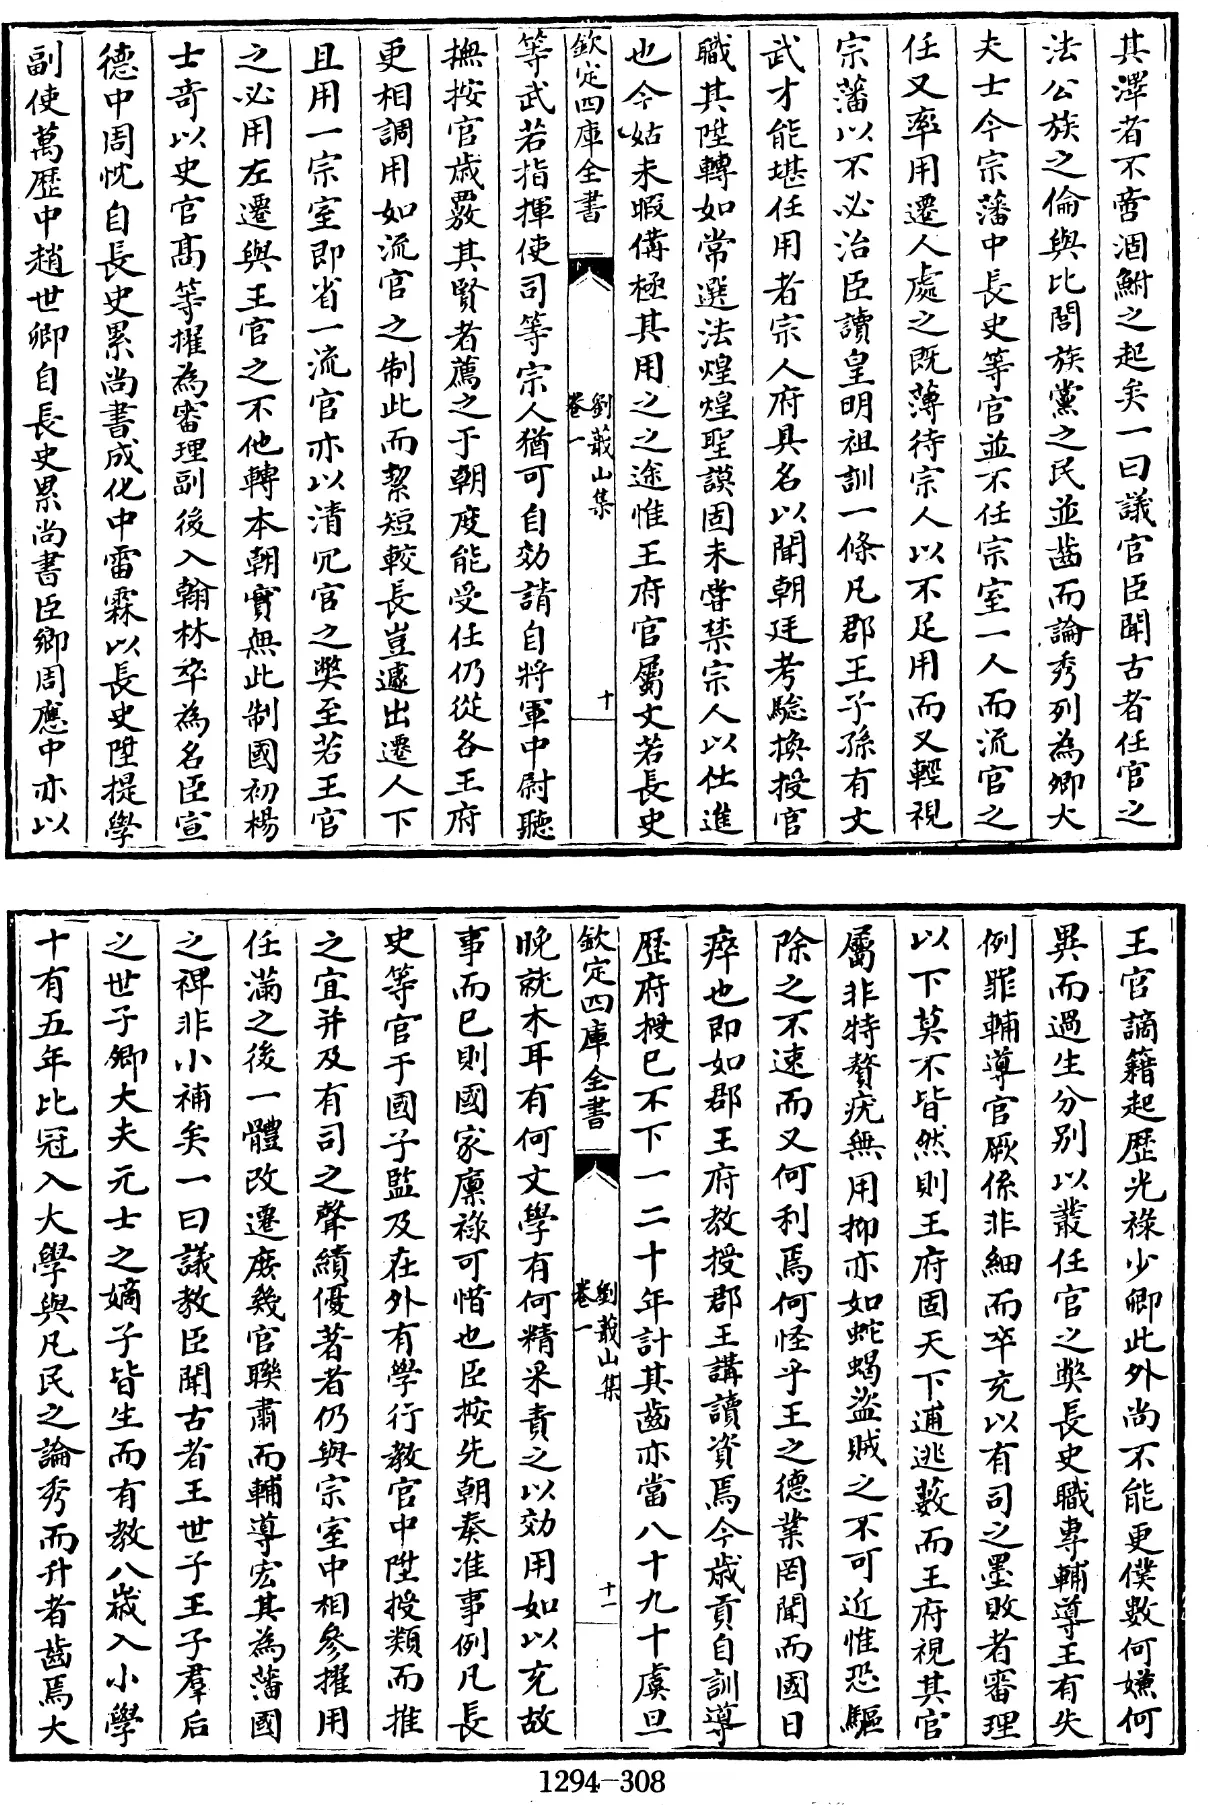 其澤者不啻涸鮒之起矣一曰議官臣聞古者任官之
法公族之倫與比閭族黨之民並齒而論秀列為卿大
夫士今宗藩中長史等官並不任宗室一人而流官之
任又率用遷人處之既薄待宗人以不足用而又輕視
宗藩以不必治臣讀皇明祖訓一條凡郡王子孫有文
武才能堪任用者宗人府具名以聞朝廷考驗換授官
職其陞轉如常選法煌煌聖謨固未嘗禁宗人以仕進
也今姑未暇備極其用之之途惟王府官屬文若長史
欽定四庫全書
劉蕺山集
卷一
十
等武若指揮使司等宗人猶可自効請自將軍中尉聽
撫按官歲覈其賢者薦之于朝度能受任仍從各王府
更相調用如流官之制此而絜短較長豈遽出遷人下
且用一宗室即省一流官亦以清冗官之獘至若王官
之必用左遷與王官之不他轉本朝實無此制國初楊
士奇以史官高等擢為審理副後入翰林卒為名臣宣
德中周忱自長史累尚書成化中雷霖以長史陞提學
副使萬歷中趙世卿自長史累尚書臣鄉周應中亦以
王官謫籍起歷光祿少卿此外尚不能更僕數何嫌何
異而過生分別以叢任官之獘長史職專輔導王有失
例罪輔導官厥係非細而卒充以有司之墨敗者審理
以下莫不皆然則王府固天下逋逃藪而王府視其官
屬非特贅疣無用抑亦如蛇蝎盜賊之不可近惟恐驅
除之不速而又何利焉何怪乎王之德業罔聞而國日
瘁也即如郡王府教授郡王講讀資焉今歲貢自訓導
歷府授已不下一二十年計其齒亦當八十九十虞旦
欽定四庫全書
劉蕺山集
卷一
十一
晚就木耳有何文學有何精采責之以効用如以充故
事而已則國家廩祿可惜也臣按先朝奏准事例凡長
史等官于國子監及在外有學行教官中陞授類而推
之宜并及有司之聲績優著者仍與宗室中相參擢用
任滿之後一體改遷庶幾官聯肅而輔導宏其為藩國
之裨非小補矣一曰議教臣聞古者王世子王子羣后
之世子卿大夫元士之嫡子皆生而有教八歲入小學
十有五年比冠入大學與凡民之論秀而升者齒焉大
1294-308